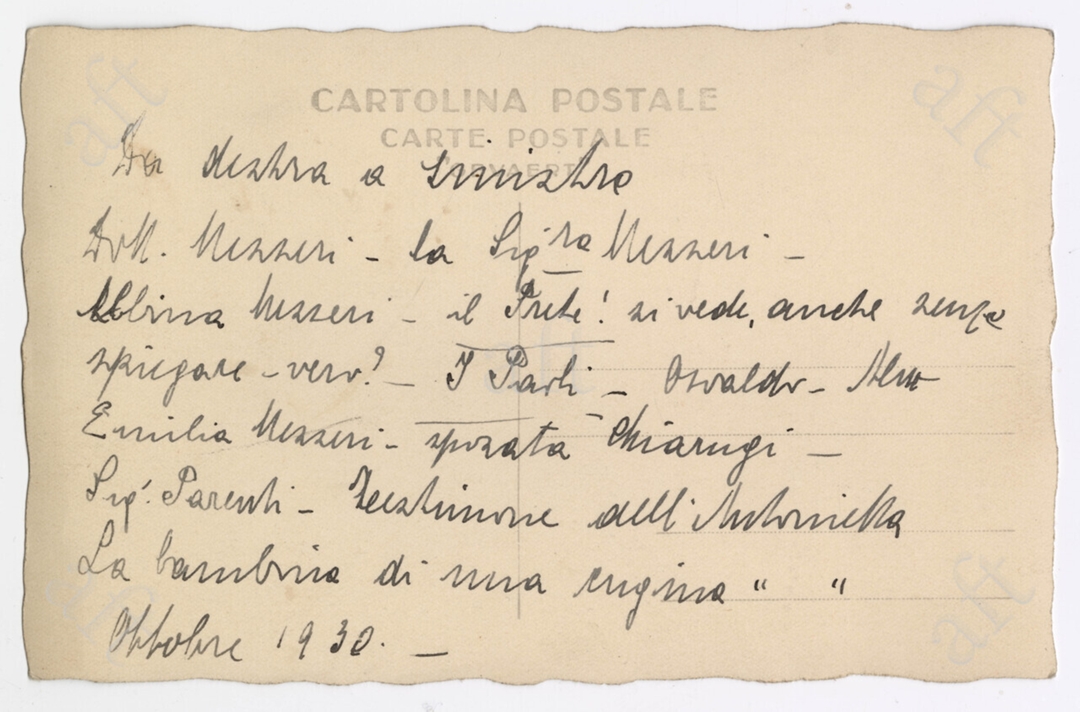 CARTOLINA POSTALE
CARTE POSTALE
GEVAERT
Da destra a sinistra
Dott. Mezzeri - la Sig.ra Mezzeri -
Albina Mezzeri - il Prete! si vede, anche senza
spiegare - vero? - I Paoli - Osvaldo -
Emilia Mezzeri - sposata Chiarugi -
Sig. Parenti - Testimone dell'Antonietta
La bambina di una cugina " "
Ottobre 1930. -
aft
aft
aft
aft
aft